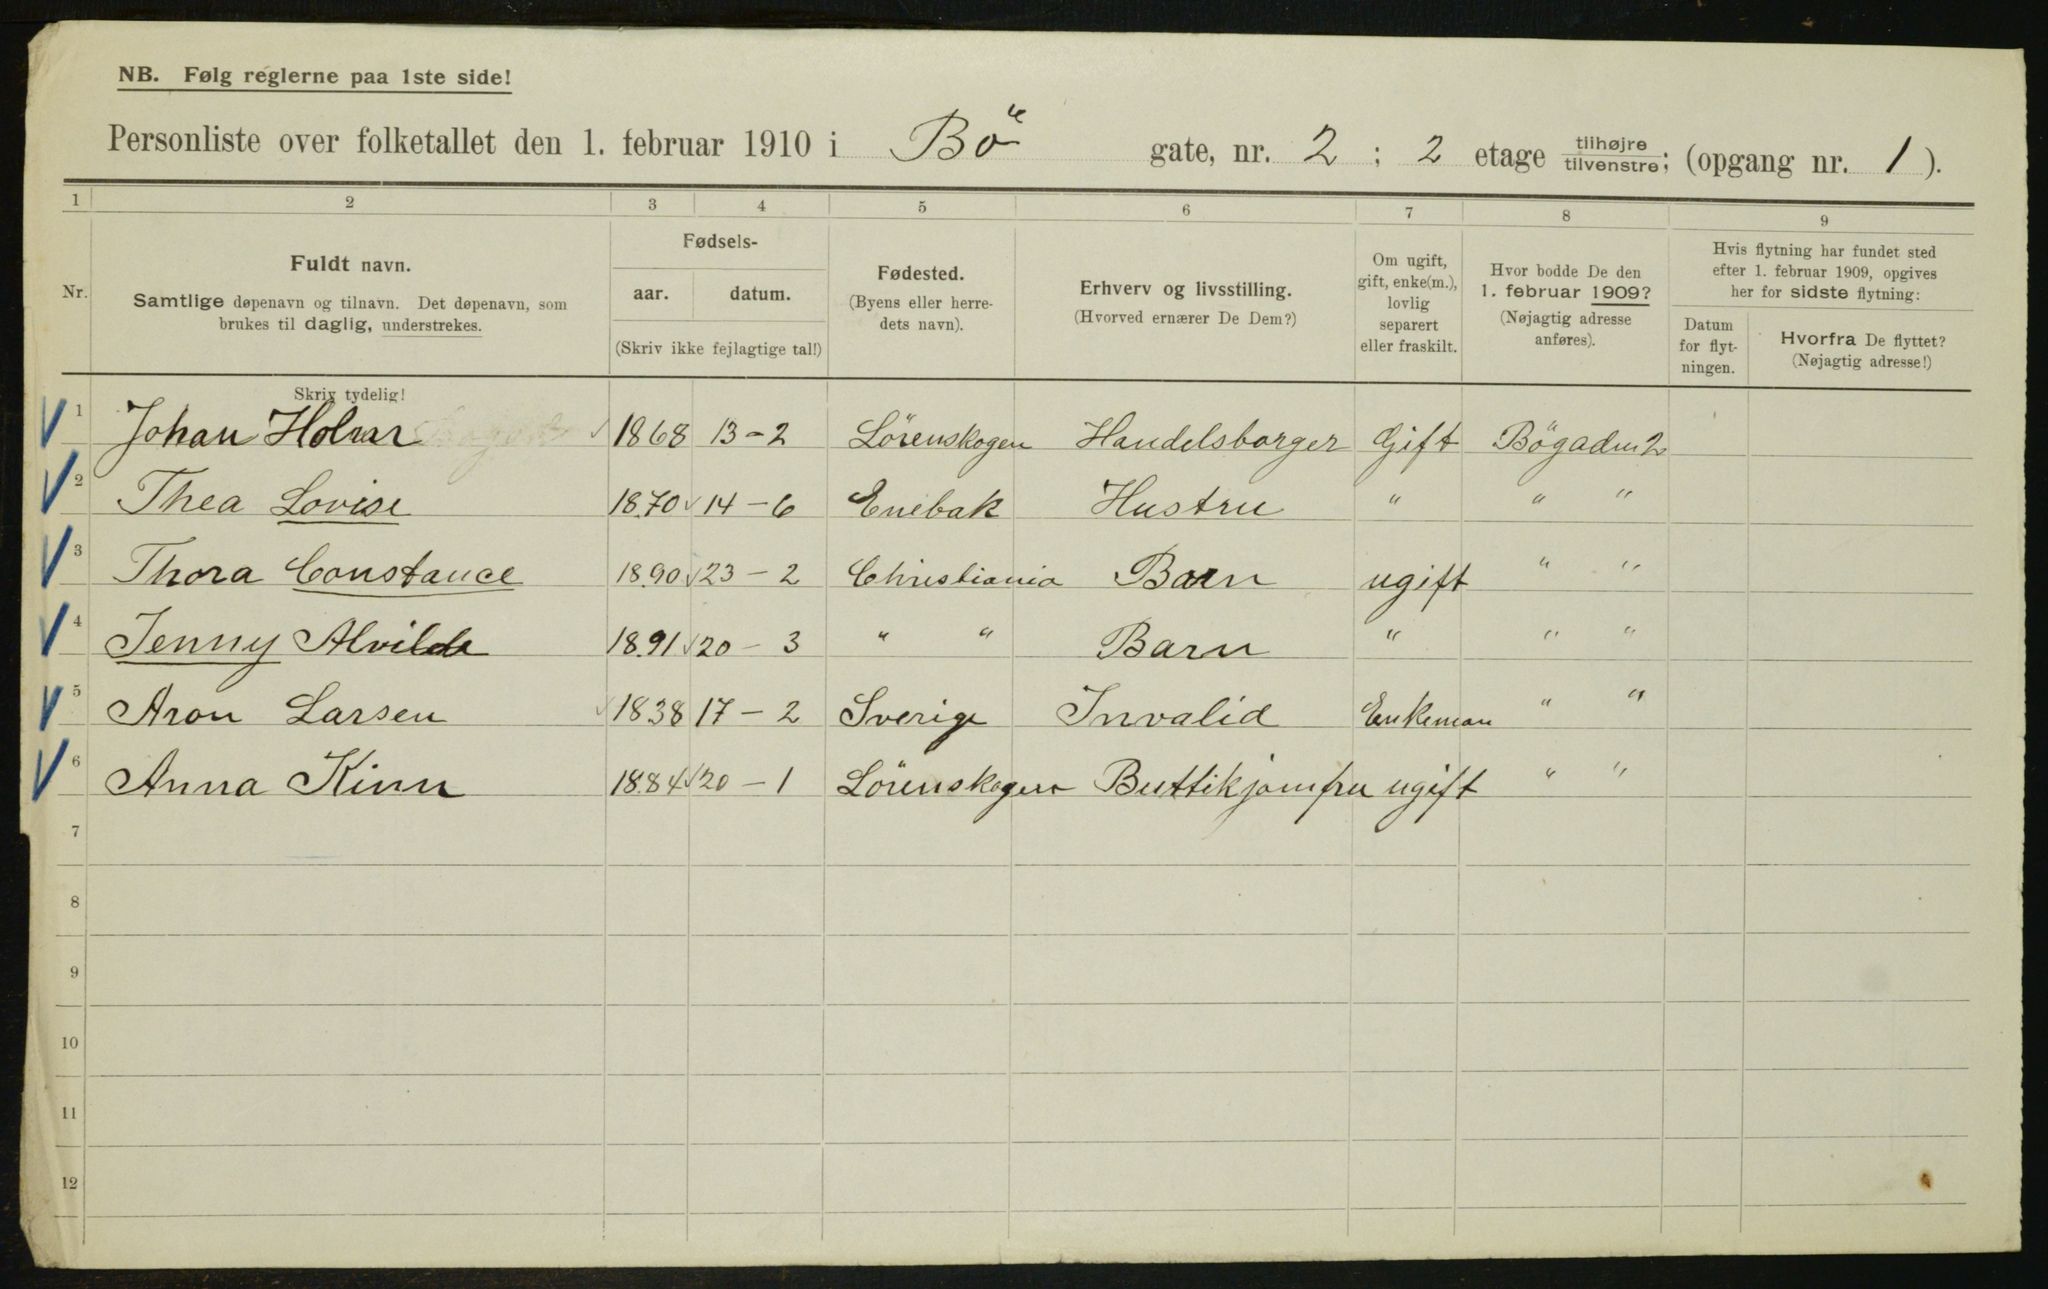 NB. Følg reglerne paa 1ste side!
Personliste over folketallet den 1. februar 1910 i Bö gate, nr. 2 ; 2 etage tilhøjre tilvenstre; (opgang nr. 1 ).
1 2 3 4 5 6 7 8 9
Nr. Fuldt navn. Samtlige døpenavn og tilnavn. Det døpenavn, som brukes til daglig, understrekes.
Fødsels-
aar. datum.
(Skriv ikke fejlagtige tal!)
Fødested. (Byens eller herredets navn).
Erhverv og livsstilling. (Hvorved ernærer De Dem?)
Om ugift, gift, enke(m.), lovlig separert eller fraskilt.
Hvor bodde De den 1. februar 1909? (Nøjagtig adresse anføres).
Hvis flytning har fundet sted efter 1. februar 1909, opgives her for sidste flytning:
Datum for flytningen.
Hvorfra De flyttet? (Nøjagtig adresse!)
Skriv tydelig!
1 Johan 1868 13-2 Lörenskogen Handelsborger Gift Bögaden 2
2 Thea Lovise 1870 14-6 Enebak Hustru " " "
3 Thora Constance 1890 23-2 Christiania Barn ugift " "
4 Jenny Alvilde 1891 20-3 " " Barn " " "
5 Aron Larsen 1838 17-2 Sverige Invalid Enkeman " "
6 Anna Kinn 1884 20-1 Lörenskogen Buttikjomfru ugift " "
7
8
9
10
11
12